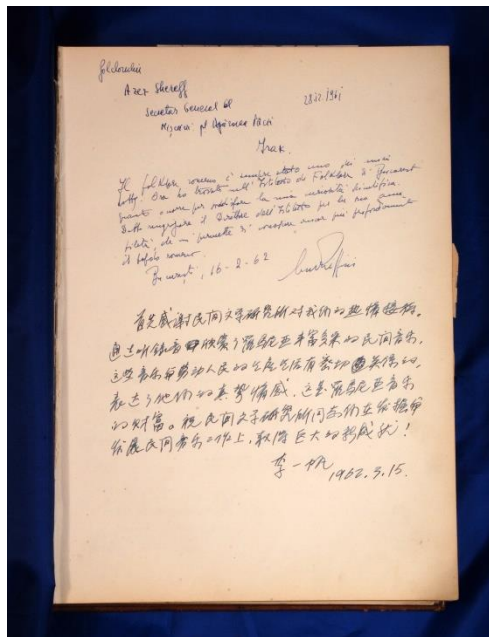 folclorului
Aziz Shereff
Secretar General al
Mișcării pt Apărarea Păcii
28 IX 1961
Irak.
Il folklore romeno è sempre stato uno dei miei
Ora ho trovato nell'Istituto di Folklore di Bucarest
quanto occorre per soddisfare la mia curiosità scientifica.
ringraziare il Direttore dell'Istituto per la sua
di conoscere ancor più profondamente
il popolo romeno.
București, 16-2-62
首先感谢民间文学研究所对我们的热情接待。
通过听录音欣赏了罗马尼亚丰富多采的民间音乐，
这些音乐与劳动人民的生产生活有密切关系的，
表达了他们的真挚情感，这是罗马尼亚音乐
的财富。祝民间文学研究所同志们在发掘和
发展民间音乐工作上，取得巨大的新成就！
李一帆
1962.3.15.